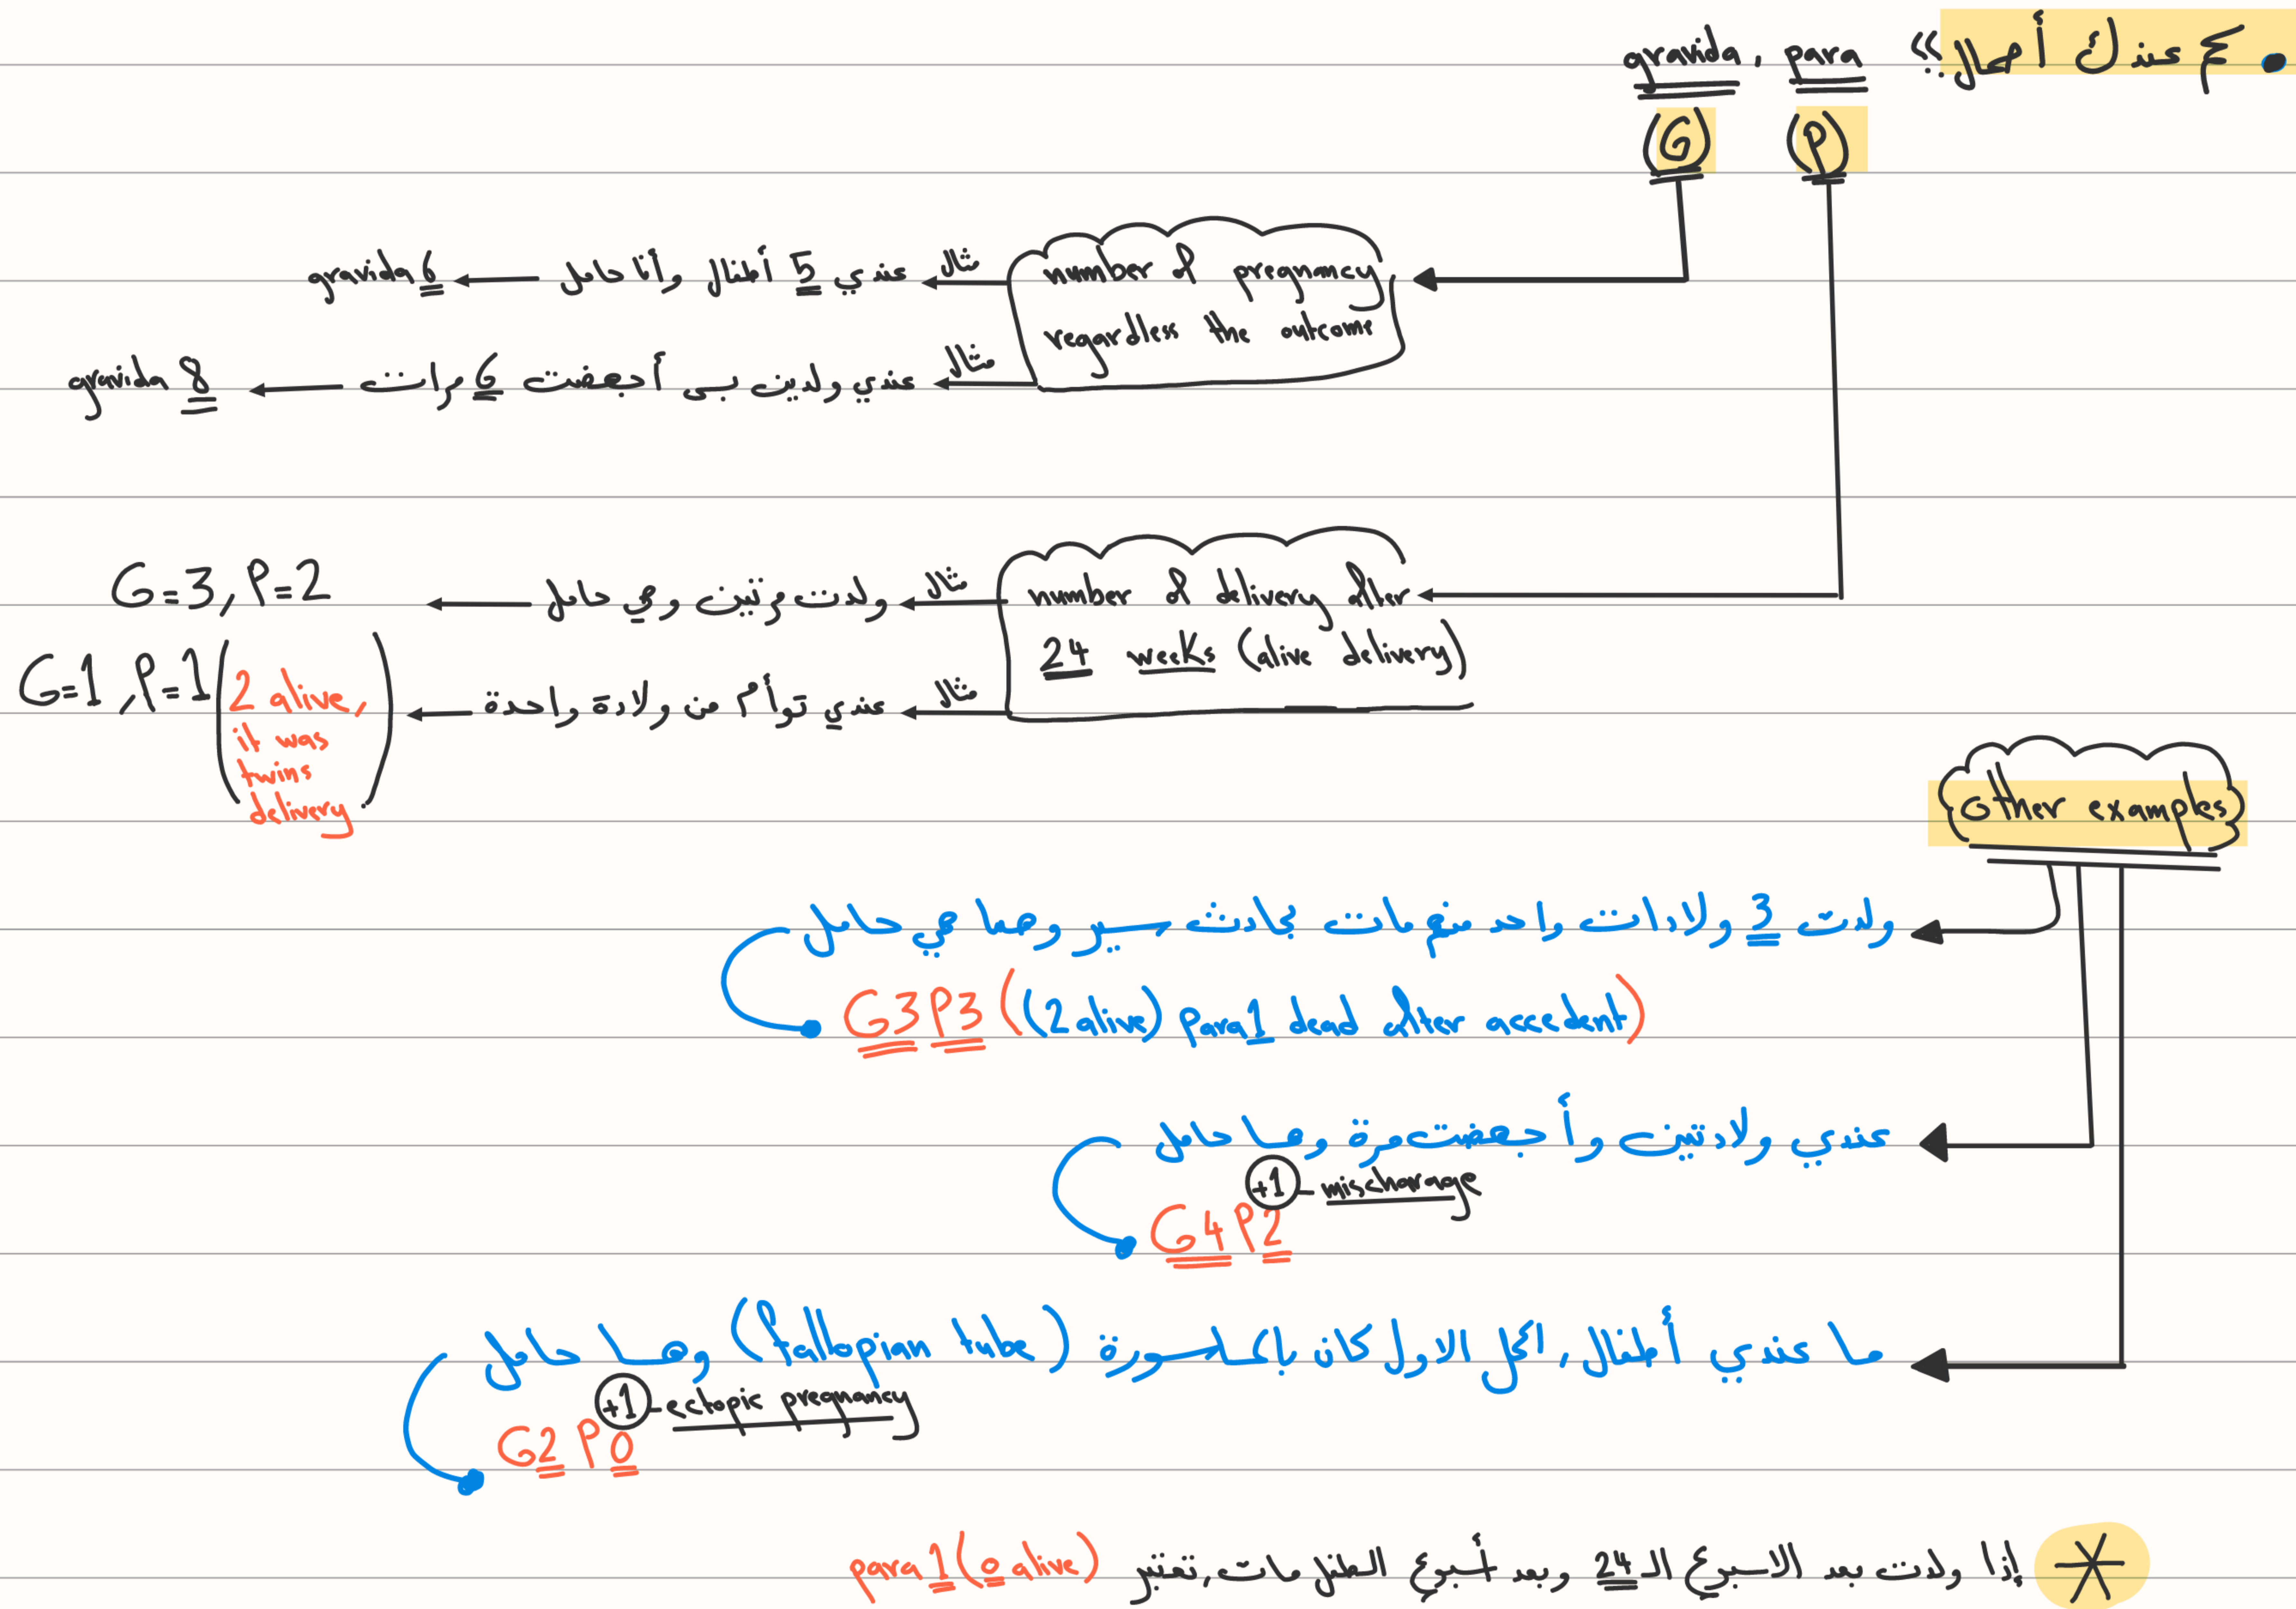 • كم عندك أحمال؟؟ gravida, para
(G) (P)
number of pregnancy
regardless the outcome
مثال عندي 5 أطفال وأنا حامل gravida 6
مثال عندي ولدين بس أجهضت 6 مرات gravida 8
number of delivery after
24 weeks (alive delivery)
مثال ولدت مرتين وهي حامل G=3, P=2
مثال عندي توأم من ولادة واحدة G=1, P=1 (2 alive, it was twins delivery)
other examples
ولدت 3 ولادات واحد منهم مات بحادث سير وهسا هي حامل
G3P3 ((2 alive) Para 1 dead after accedent)
عندي ولادتين وأجهضت مرة وهسا حامل
G4P2 +1 mischarage
ما عندي أطفال، الحمل الاول كان بالماسورة (fallopian tube) وهسا حامل
G2P0 +1 ectopic pregnancy
* إذا ولدت بعد الاسبوع الـ 24 وبعد أسبوع الطفل مات، تعتبر para 1 (0 alive)